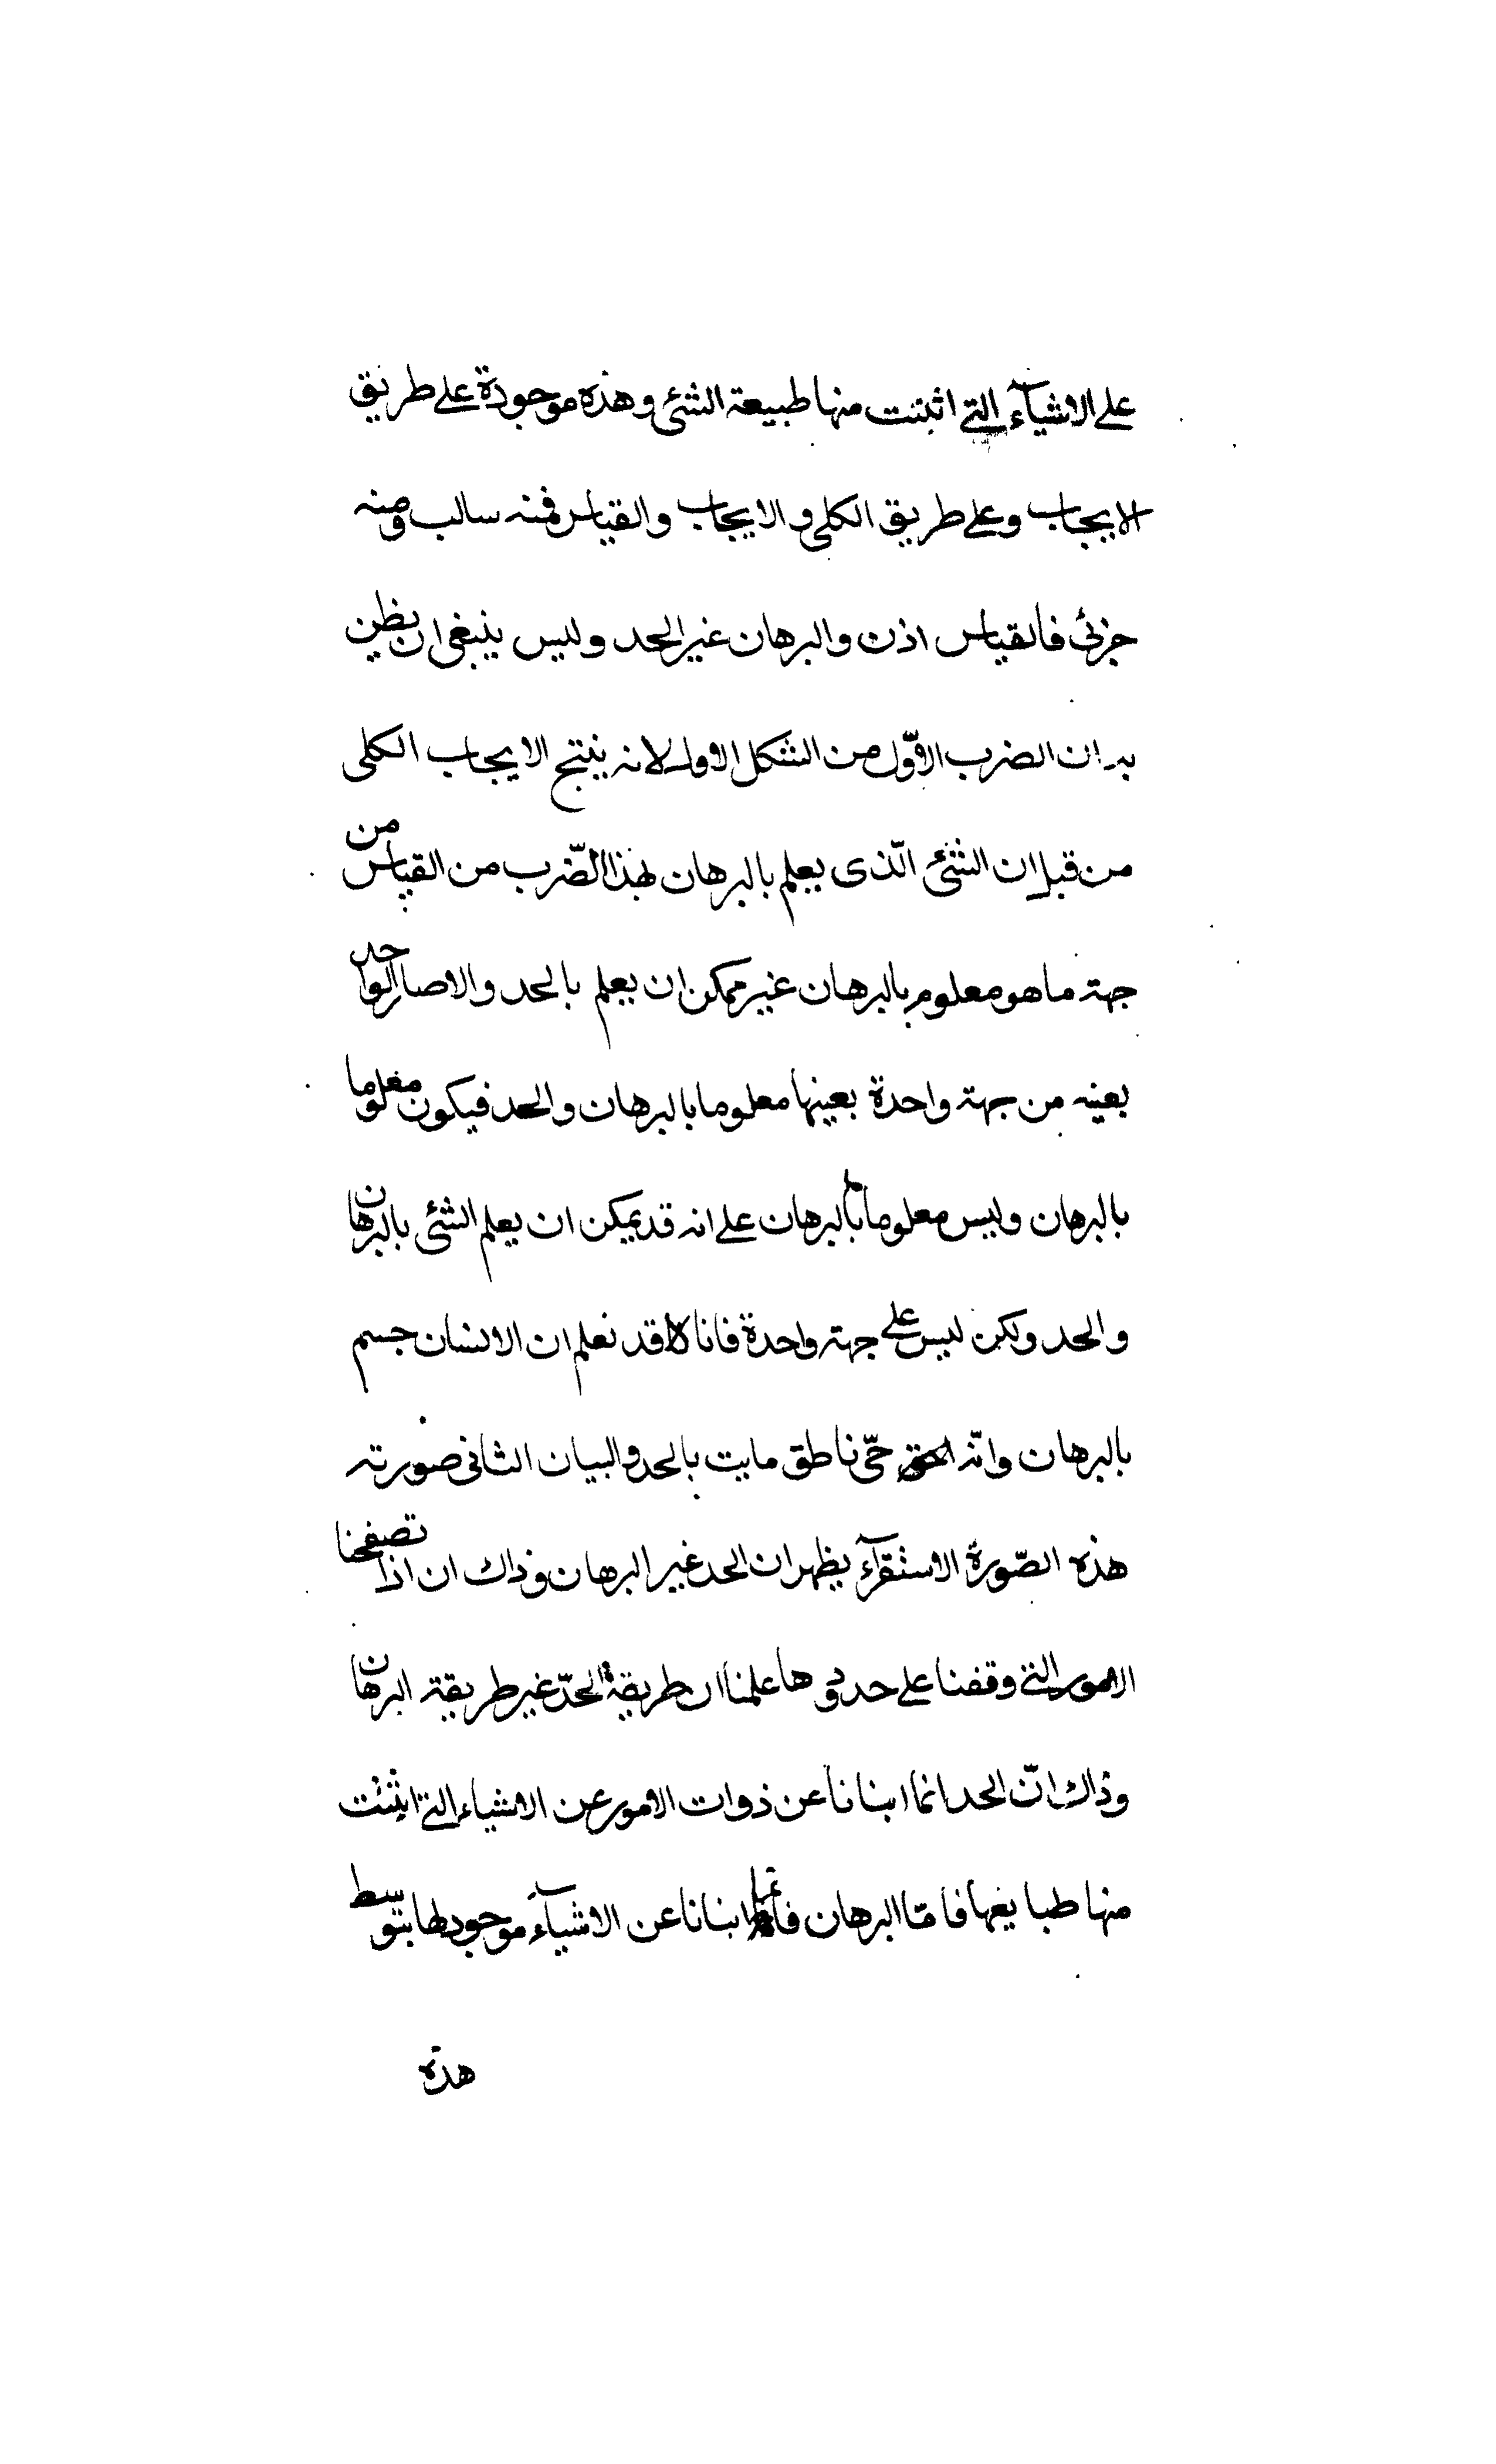 على الاشيآء التى اثبتت منها طبيعة الشئ وهذه موجودة على طريق
الايجاب وعلى طريق الكلى والايجاب والقياس فمنه سالب ومنه
جزئ فالقياس اذن والبرهان غير الحد وليس ينبغى ان يظن
به ان الضرب الاوّل من الشكل الاول لانه ينتج الايجاب الكلى
من قبل ان الشئ الّذى يعلم بالبرهان لهذا الضّرب من القياس من
جهة ما هو معلوم بالبرهان غير ممكن ان يعلم بالحد والا صار الواحد
بعينه من جهة واحدة بعينها معلوما بالبرهان والحد فيكون معلوما
بالبرهان وليس معلوما بالبرهان على انه قد يمكن ان يعلم الشئ بالبرهان
والحد ولكن ليس على جهة واحدة فانا قد نعلم ان الانسان جسم
بالبرهان وانّه حّى ناطق مايت بالحد والبيان الثانى صورته
هذه الصّورة الاستقرآء يظهر ان الحد غير البرهان وذاك ان اذا تصفحنا
الامور التى وقفنا على حدودها علمنا ان طريقة الحدّ غير طريقة البرهان
وذاك انّ الحد انما ابنانا عن ذوات الامور عن الاشياء التى اثبتت
منها طبايعها فامّا البرهان فانما ابنانا عن الاشيآء موجود لها بتوسّط
هذه